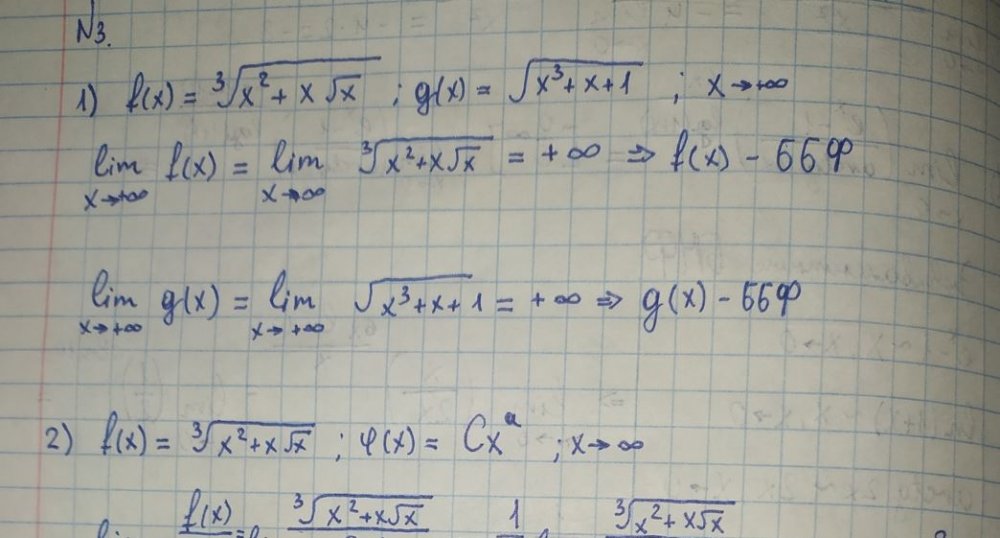 N3.
1) f(x) = ∛(x² + x√x) ; g(x) = √(x³ + x + 1) ; x→+∞
lim x→+∞ f(x) = lim x→∞ ∛(x² + x√x) = +∞ ⇒ f(x) - ббф
lim x→+∞ g(x) = lim x→+∞ √(x³ + x + 1) = +∞ ⇒ g(x) - ббф
2) f(x) = ∛(x² + x√x) ; φ(x) = Cxᵃ ; x→∞
f(x) ∛(x² + x√x) 1 ∛(x² + x√x)